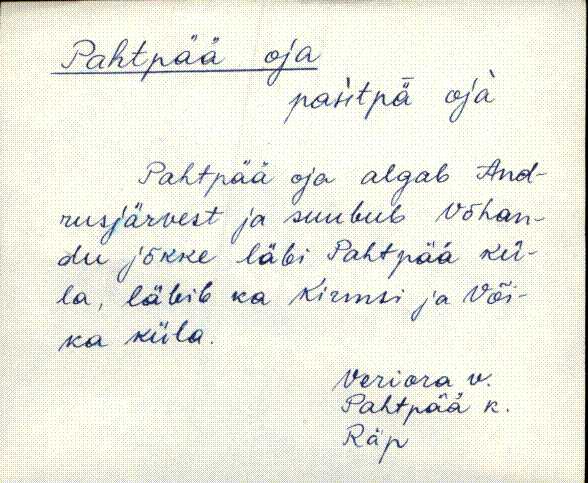 Pahtpää oja
pasitpǟ ojà
Pahtpää oja algab And-
rusjärvest ja suubub Võhan-
du jõkke läbi Pahtpää kü-
la, läbib ka Kirmsi ja Või-
ka küla.
Veriora v.
Pahtpää k.
Räp